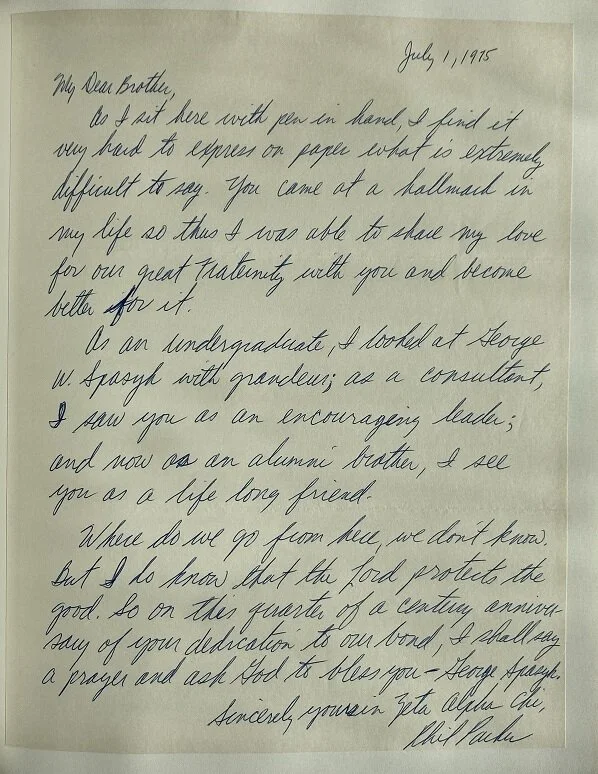 July 1, 1975
My Dear Brother,
As I sit here with pen in hand, I find it
very hard to express on paper what is extremely
difficult to say. You came at a hallmark in
my life so thus I was able to share my love
for our great Fraternity with you and become
better for it.
As an undergraduate, I looked at George
W. Spasyk with grandeur; as a consultant,
I saw you as an encouraging leader;
and now as an alumni brother, I see
you as a life long friend.
Where do we go from here, we don't know.
But I do know that the Lord protects the
good. So on this quarter of a century anniver-
sary of your dedication to our bond, I shall say
a prayer and ask God to bless you - George Spasyk.
Sincerely yours in Zeta Alpha Chi,
Phil Parker